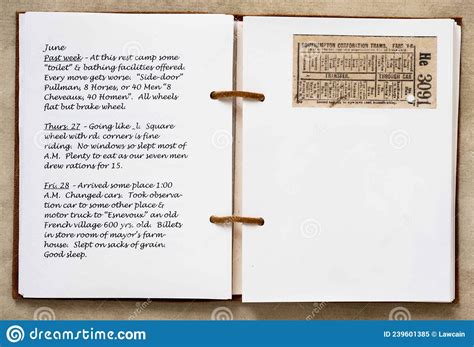 June
Past week – At this rest camp some
"toilet" & bathing facilities offered.
Every move gets worse. "Side-door"
Pullman, 8 Horses, or 40 Men "8
Cheveaux, 40 Homen". All wheels
flat but brake wheel.
Thurs. 27 – Going like _l. Square
wheel with rd. corners is fine
riding. No windows so slept most of
A.M. Plenty to eat as our seven men
drew rations for 15.
Fri. 28 – Arrived some place 1:00
A.M. Changed cars. Took observa-
tion car to some other place &
motor truck to "Esnevoux" an old
French village 600 yrs. old. Billets
in store room of mayor's farm-
house. Slept on sacks of grain.
Good sleep.
SOUTHAMPTON CORPORATION TRAMS.
TRANSFER.
THROUGH CAR
He 3091
dreamstime
dreamstime.com
ID 239601385 © Lawcain